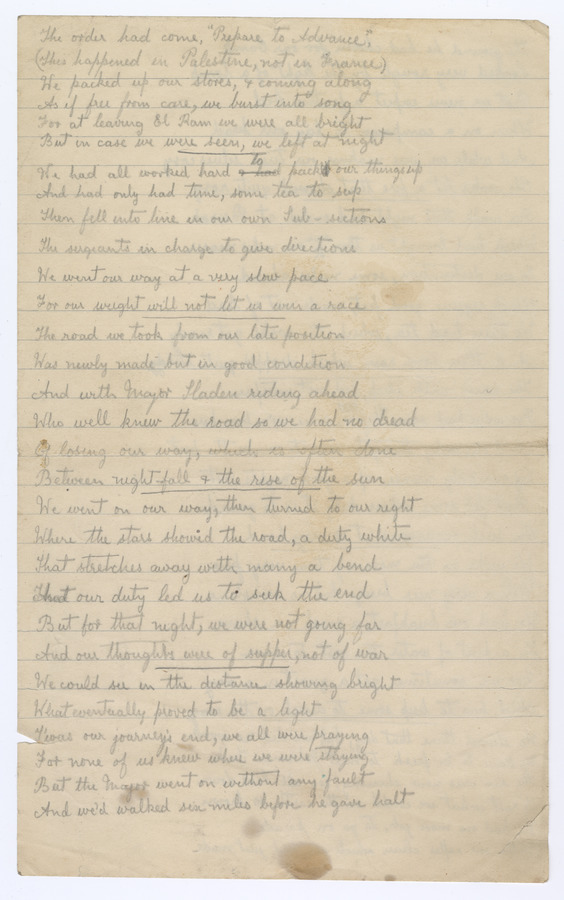 The order had come, "Prepare to Advance",
(This happened in Palestine, not in France)
We packed up our stores, & coming along
As if free from care, we burst into song
For at leaving El Ram we were all bright
But in case we were seen, we left at night
We had all worked hard & had to pack our things up
And had only had time, some tea to sup
Then fell into line in our own Sub-sections
The sergeants in charge to give directions
We went our way at a very slow pace
For our weight will not let us win a race
The road we took from our late position
Was newly made but in good condition
And with Major Sladen riding ahead
Who well knew the road so we had no dread
Of losing our way, which is often done
Between night-fall & the rise of the sun
We went on our way, then turned to our right
Where the stars showed the road, a dirty white
That stretches away with many a bend
That our duty led us to seek the end
But for that night, we were not going far
And our thoughts were of supper, not of war
We could see in the distance showing bright
What eventually proved to be a light
Twas our journey's end, we all were praying
For none of us knew where we were staying
But the Major went on without any fault
And we'd walked six miles before he gave halt